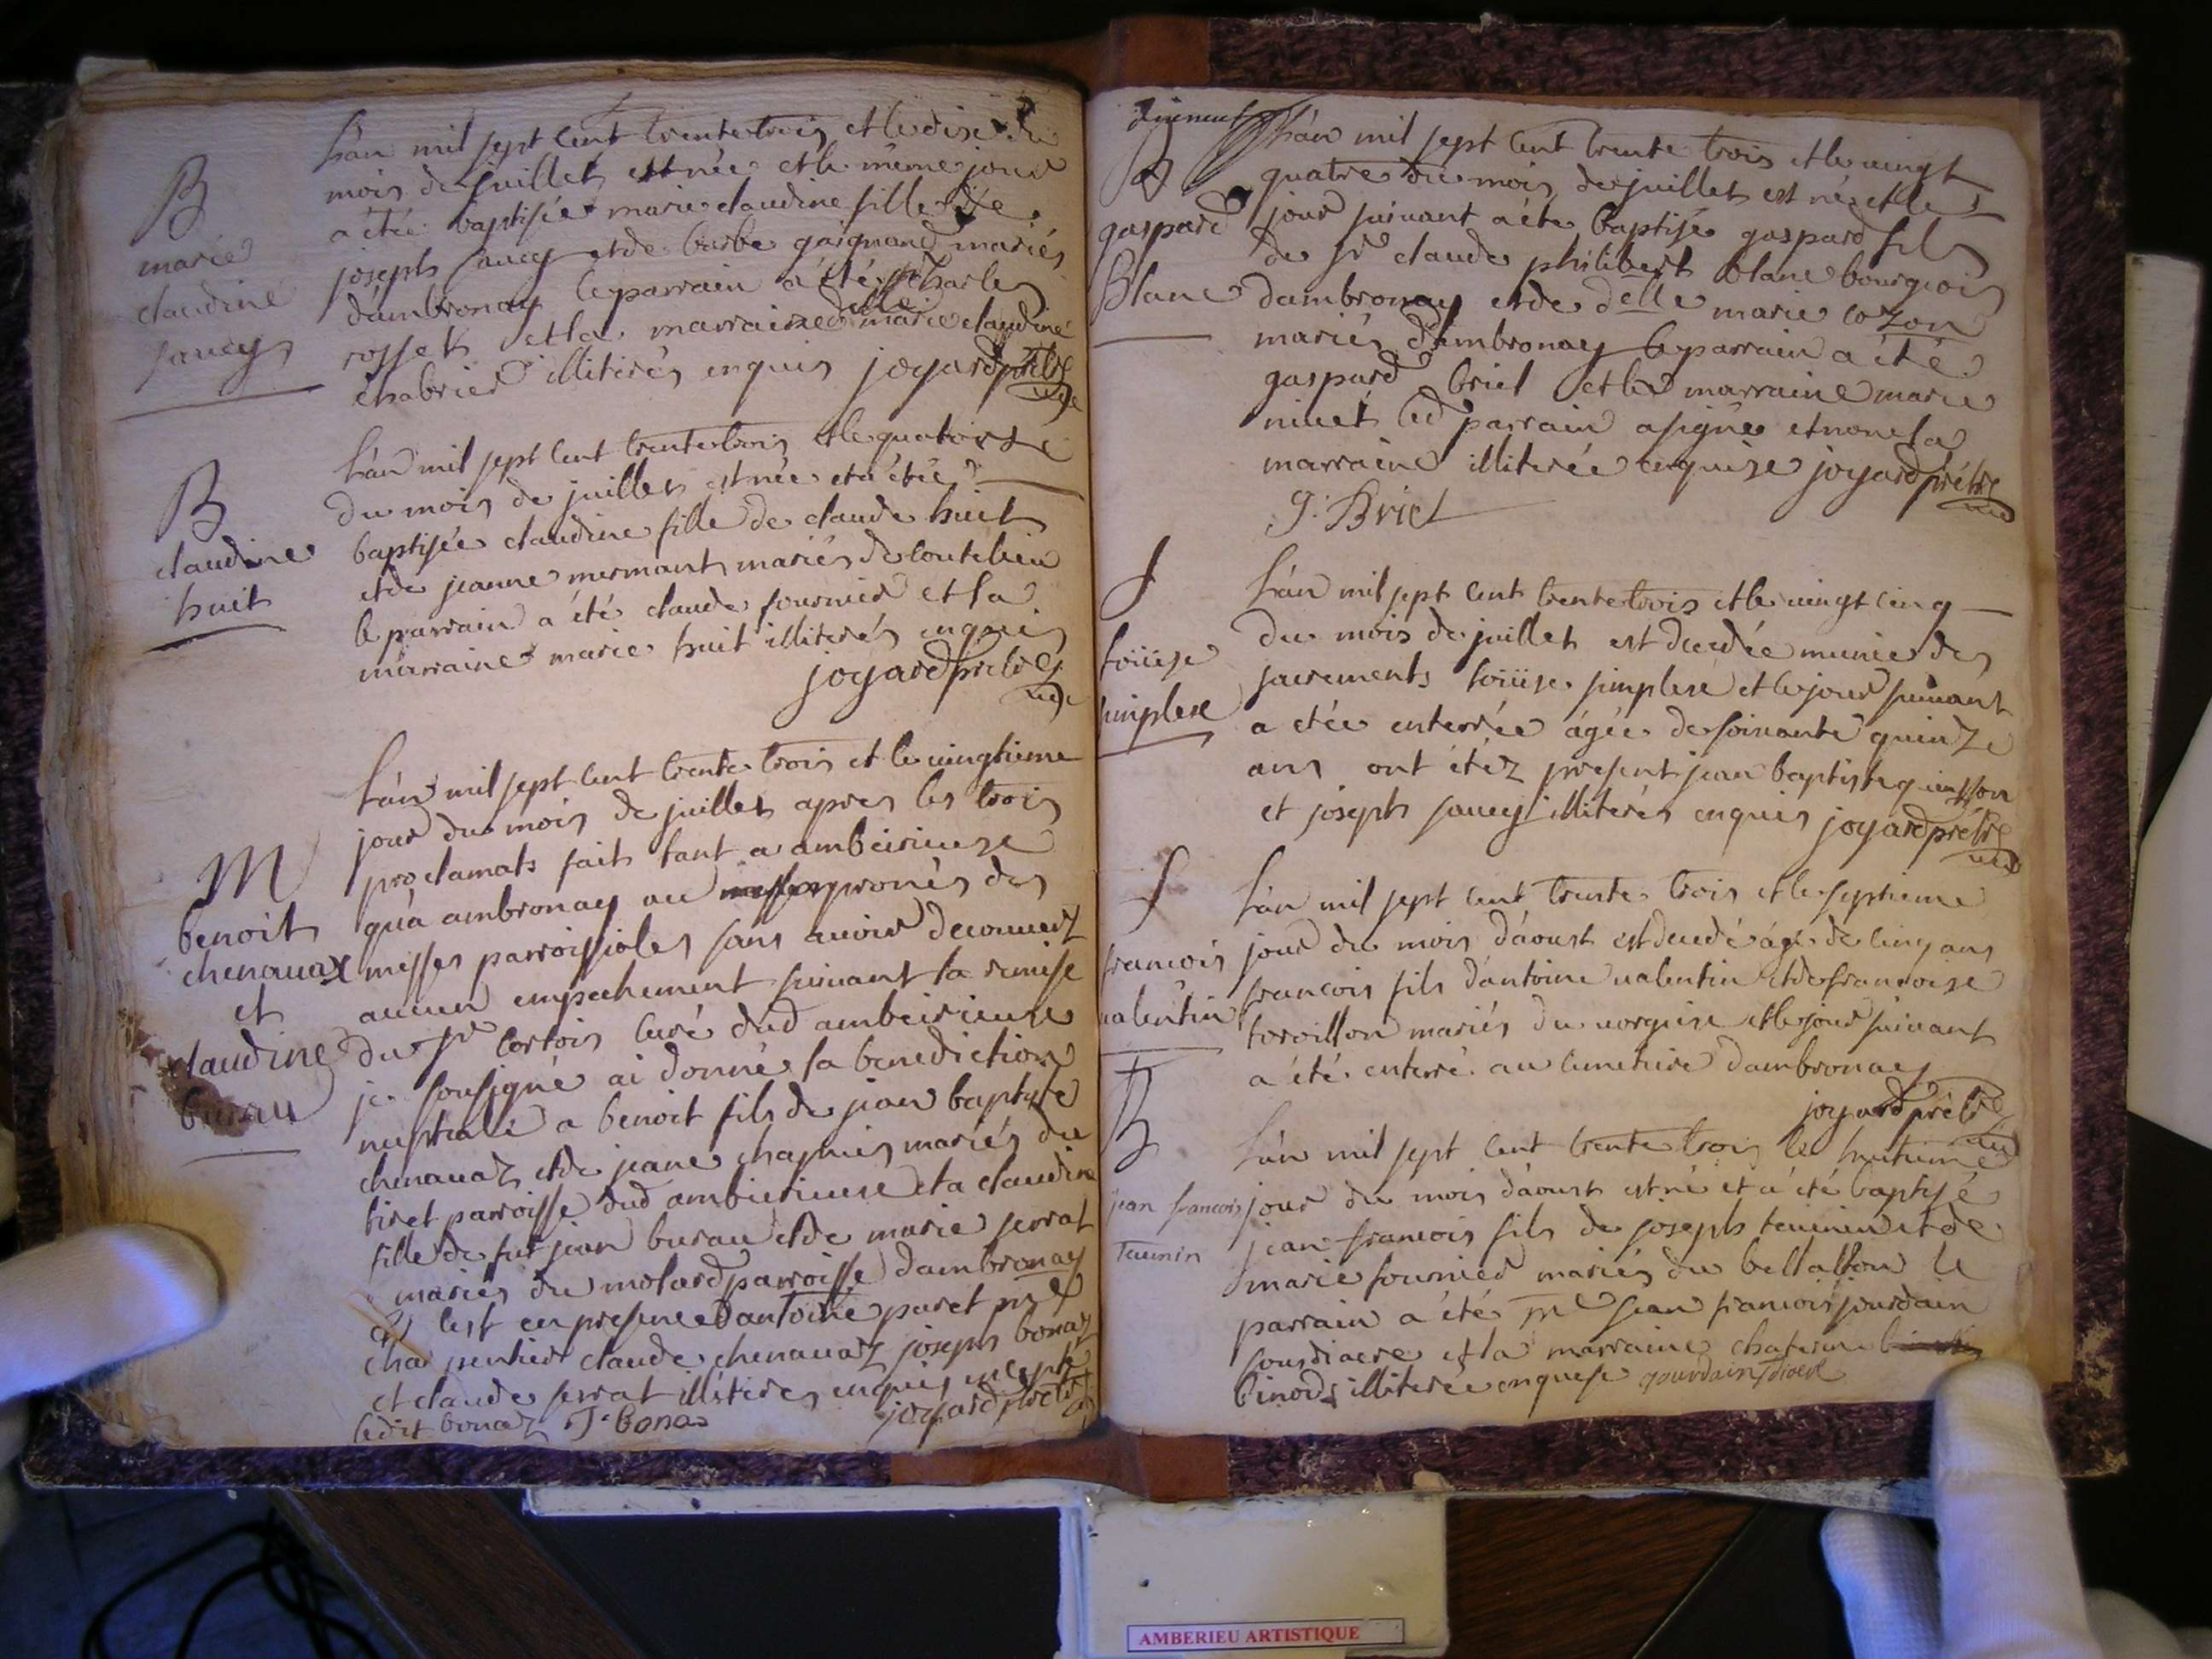 B
marie
claudine
saucy
L'an mil sept cent trente trois et le dixe du
mois de juillet est née et le même jour
a étée baptisée marie claudine fille de
joseph saucy et de barbe gaignand mariés
d'ambronay le parrain a été charles
rosset et la marraine delle marie claudine
chabrier illiterés enquis joyard prêtre
B
claudine
huit
L'an mil sept cent trente trois et le quatorze
du mois de juillet est née et a étée
baptisée claudine fille de claude huit
et de jeanne mermant mariés de coutelieu
le parrain a été claude fournier et la
marraine marie huit illiterés enquis
joyard prêtre
M
benoit
chenauaz
et
claudine
bureau
L'an mil sept cent trente trois et le uingtieme
jour du mois de juillet apres les trois
proclamats fait tant a ambeirieuze
qu'a ambronay au prones des
messes parroissioles sans auoir decouuert
aucun empechement suiuant la remise
du sr cortois curé dud ambeirieuze
je sousigné ai donné la benediction
nuptiale a benoit fils de jean baptiste
chenauaz et de jeane chapuis mariés du
tiret parroisse dud ambeirieuse et a claudine
fille de fut jean bureau et de marie serrat
mariés du molard parroisse d'ambronay
c'est en presence d'antoine paret me
charpentier claude chenauaz joseph bonaz
et claude serrat illiterés enquis excepté
ledit bonaz J. Bonas joyard prêtre
B
gaspard
Blanc
L'an mil sept cent trente trois et le uingt
quatre du mois de juillet est né et le
jour suiuant a été baptisé gaspard fils
de sr claude philibert blanc bourgeois
dambronay et de delle marie cozon
mariés d'ambronay le parrain a été
gaspard briel et la marraine marie
niuet led parrain a signé et non la
marraine illiterée enquize joyard prêtre
G. Briel
S
loüize
simplese
L'an mil sept cent trente trois et le uingt cinq
du mois de juillet est decedée munie des
sacrements loüize simplese et le jour suiuant
a etée enterrée âgée de soixante quinze
ans ont étéz present jean baptiste quinsson
et joseph saucy illiterés enquis joyard prêtre
S
francois
ualentin
L'an mil sept cent trente trois et le septieme
jour du mois d'aoust est decedé âgé de cinq ans
francois fils d'antoine ualentin et de francoise
toroillon mariés du uorgeise et le jour suiuant
a été enterré au cimetiere dambronay
joyard prêtre
B
jean francois
Teunin
L'an mil sept cent trente trois le huitieme
jour du mois d'aoust est né et a été baptisé
jean francois fils de joseph teuinin et de
marie fournier mariés du bellaton le
parrain a été me jean francois jourdain
sousdiacre et la marraine chaterine
binod illiterée enquese jourdain sdiacre
AMBERIEU ARTISTIQUE